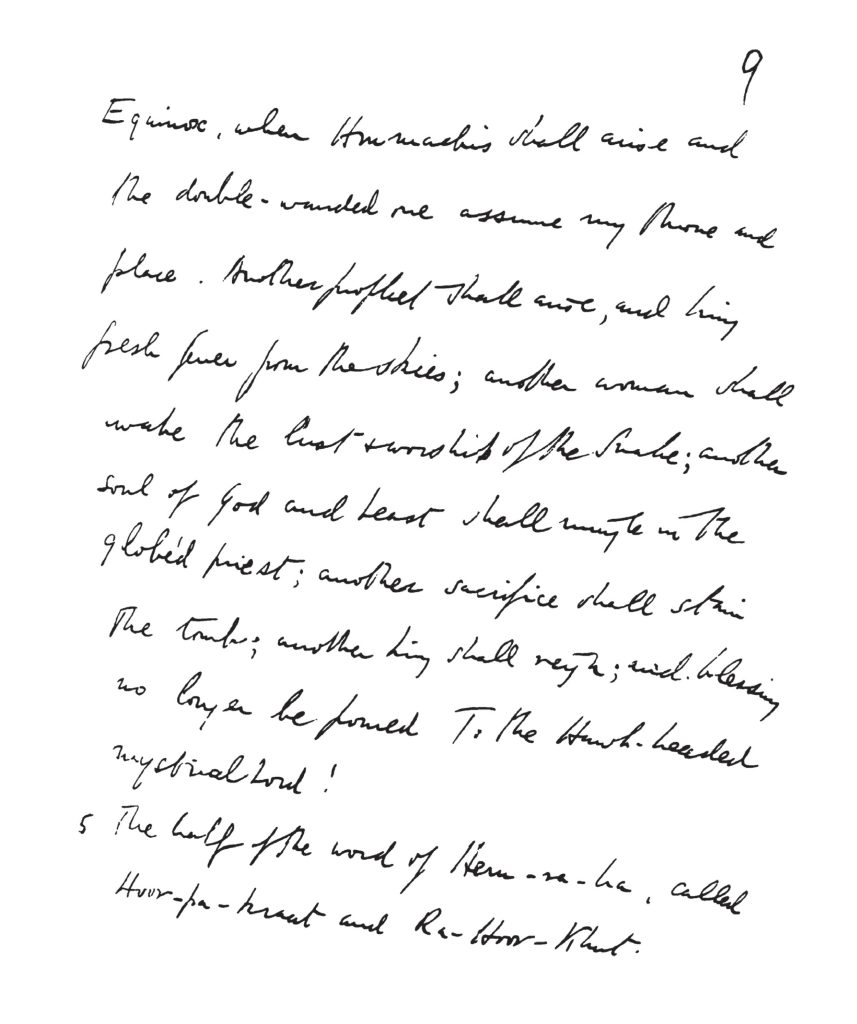 9
Equinox, when Hrumachis shall arise and
the double-wanded one assume my throne and
place. Another prophet shall arise, and bring
fresh fever from the skies; another woman shall
wake the lust & worship of the Snake; another
soul of God and beast shall mingle in the
globèd priest; another sacrifice shall stain
the tomb; another king shall reign; and blessing
no longer be poured To the Hawk-headed
mystical Lord!
5 The half of the word of Heru-ra-ha, called
Hoor-pa-kraat and Ra-Hoor-Khut.